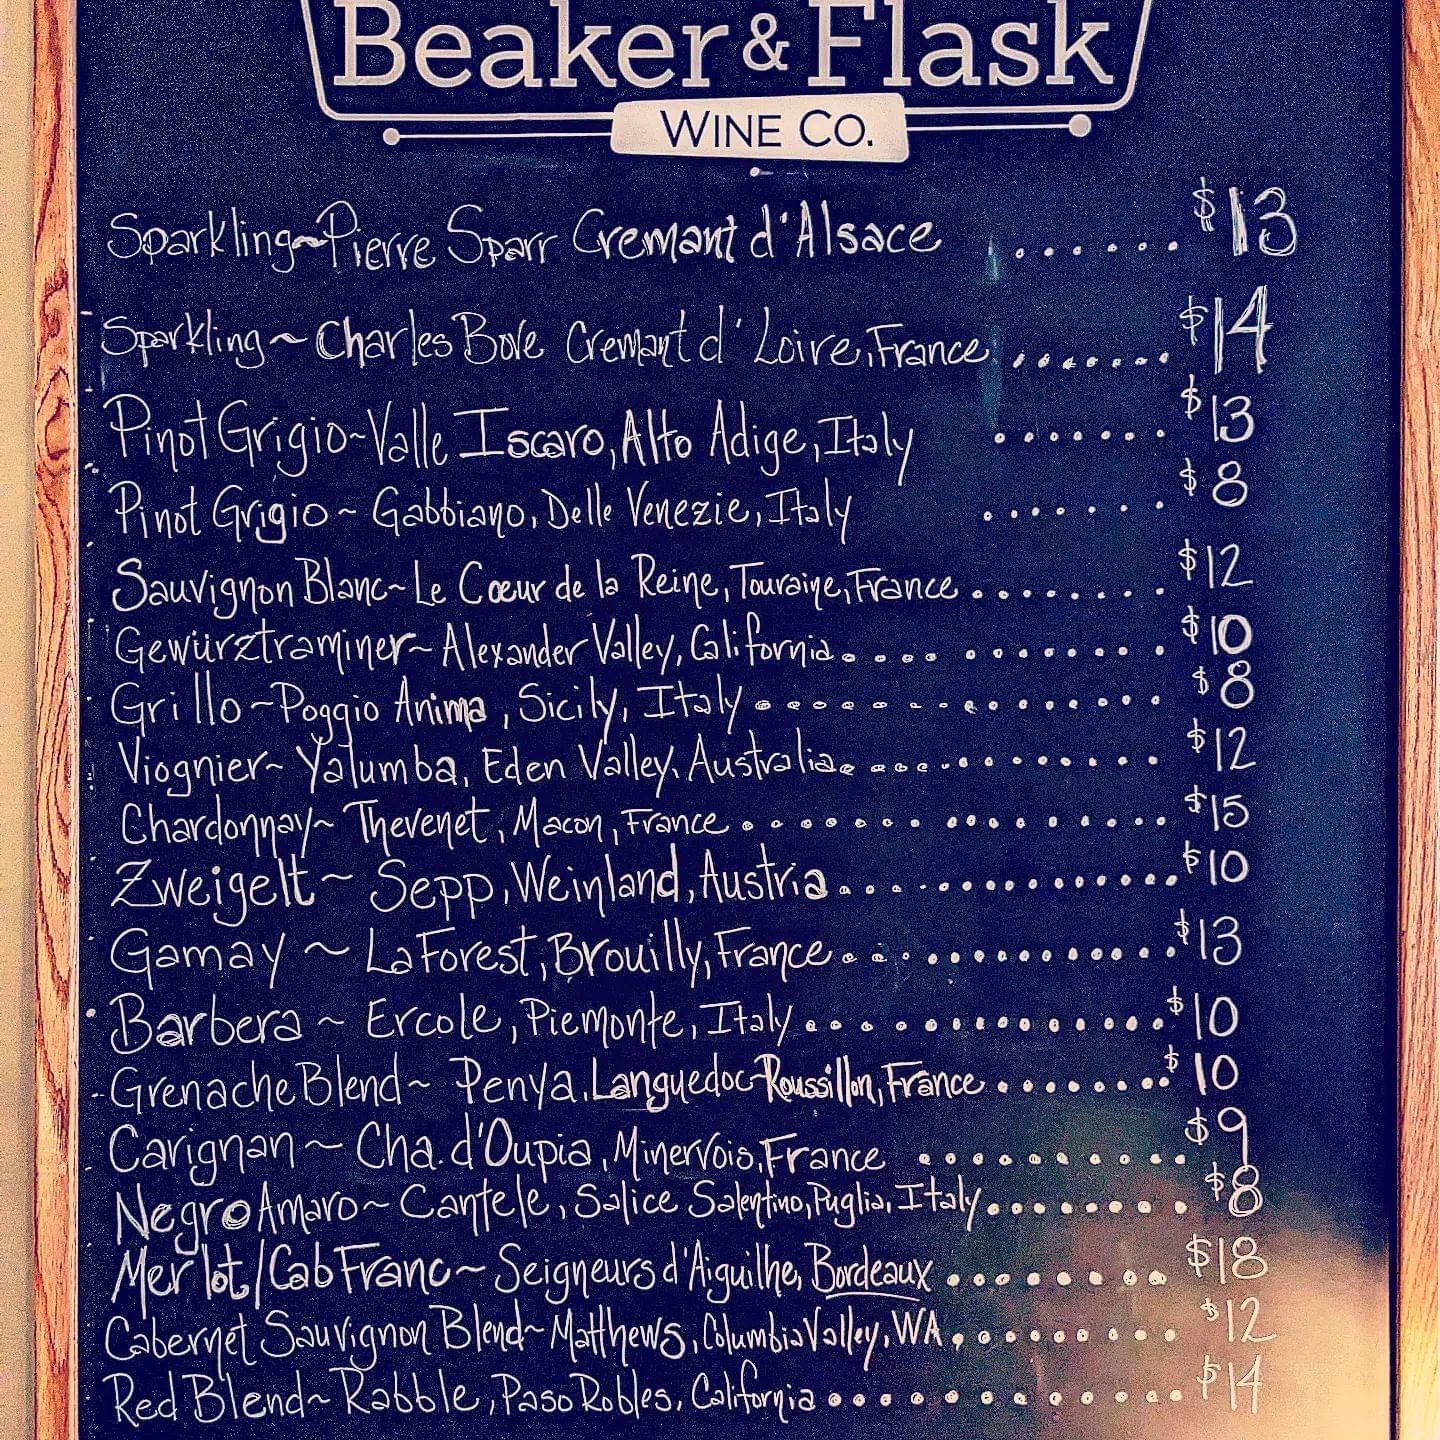 Beaker & Flask
WINE CO.
Sparkling~Pierre Sparr Cremant d'Alsace ...... $13
Sparkling~ Charles Bove Cremant d' Loire, France ....... $14
Pinot Grigio~Valle Iscaro, Alto Adige, Italy ....... $13
Pinot Grigio~ Gabbiano, Delle Venezie, Italy ...... $8
Sauvignon Blanc~ Le Cœur de la Reine, Touraine, France ........ $12
Gewürztraminer~ Alexander Valley, California ............ $10
Grillo~Poggio Anima, Sicily, Italy ............... $8
Viognier~ Yalumba, Eden Valley, Australia ............. $12
Chardonnay~ Thevenet, Macon, France ............... $15
Zweigelt~ Sepp, Weinland, Austria ............... $10
Gamay ~ LaForest, Brouilly, France .............. $13
Barbera ~ Ercole, Piemonte, Italy .............. $10
Grenache Blend~ Penya, Languedoc-Roussillon, France ........ $10
Carignan~ Cha. d'Oupia, Minervois, France .......... $9
Negro Amaro~ Cantele, Salice Salentino, Puglia, Italy ........ $8
Merlot/Cab Franc~ Seigneurs d'Aiguilhe, Bordeaux ........ $18
Cabernet Sauvignon Blend~ Matthews, Columbia Valley, WA .......... $12
Red Blend~ Rabble, Paso Robles, California .............. $14